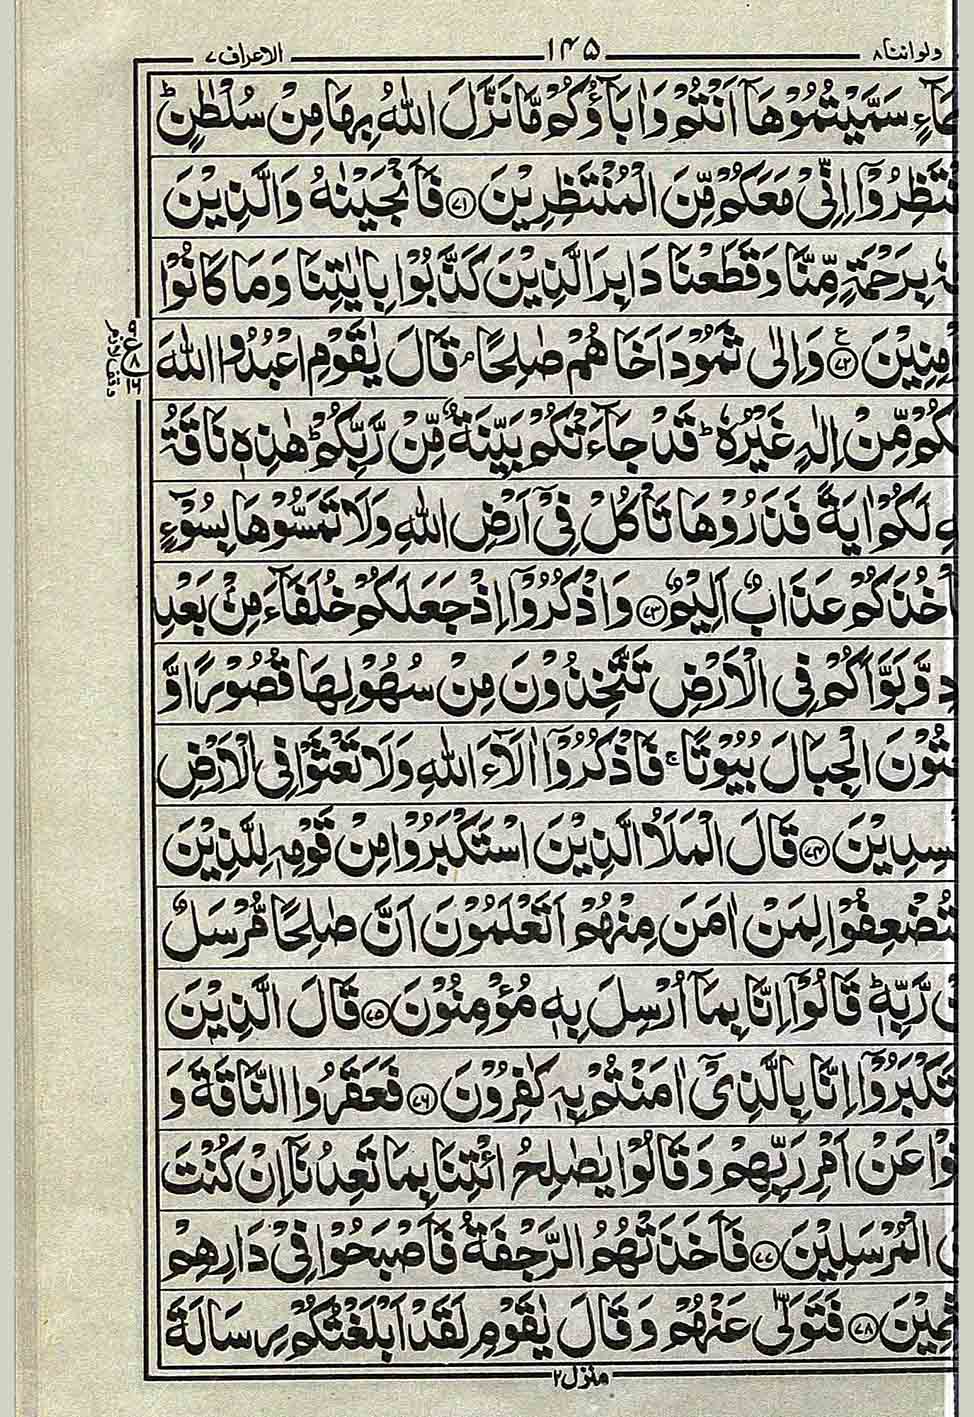 ولواننا ۸
۱۴۵
الاعراف ۷
سَمَّیْتُمُوْهَاۤ اَنْتُمْ وَ اٰبَآؤُكُمْ مَّا نَزَّلَ اللّٰهُ بِهَا مِنْ سُلْطٰنٍؕ
اِنِّیْ مَعَكُمْ مِّنَ الْمُنْتَظِرِیْنَ ﴿۷۱﴾ فَاَنْجَیْنٰهُ وَ الَّذِیْنَ
بِرَحْمَةٍ مِّنَّا وَ قَطَعْنَا دَابِرَ الَّذِیْنَ كَذَّبُوْا بِاٰیٰتِنَا وَ مَا كَانُوْا
مِنِیْنَ ﴿۷۲﴾ۧ وَ اِلٰی ثَمُوْدَ اَخَاهُمْ صٰلِحًاۘ قَالَ یٰقَوْمِ اعْبُدُوا اللّٰهَ
كُمْ مِّنْ اِلٰهٍ غَیْرُهٗؕ قَدْ جَآءَتْكُمْ بَیِّنَةٌ مِّنْ رَّبِّكُمْؕ هٰذِهٖ نَاقَةُ
لَكُمْ اٰیَةً فَذَرُوْهَا تَاْكُلْ فِیْۤ اَرْضِ اللّٰهِ وَ لَا تَمَسُّوْهَا بِسُوْٓءٍ
خُذَكُمْ عَذَابٌ اَلِیْمٌ ﴿۷۳﴾ وَ اذْكُرُوْۤا اِذْ جَعَلَكُمْ خُلَفَآءَ مِنْۢ بَعْدِ
وَّ بَوَّاَكُمْ فِی الْاَرْضِ تَتَّخِذُوْنَ مِنْ سُهُوْلِهَا قُصُوْرًا وَّ
تُوْنَ الْجِبَالَ بُیُوْتًاۚ فَاذْكُرُوْۤا اٰلَآءَ اللّٰهِ وَ لَا تَعْثَوْا فِی الْاَرْضِ
سِدِیْنَ ﴿۷۴﴾ قَالَ الْمَلَاُ الَّذِیْنَ اسْتَكْبَرُوْا مِنْ قَوْمِهٖ لِلَّذِیْنَ
تُضْعِفُوْا لِمَنْ اٰمَنَ مِنْهُمْ اَتَعْلَمُوْنَ اَنَّ صٰلِحًا مُّرْسَلٌ
رَّبِّهٖؕ قَالُوْۤا اِنَّا بِمَاۤ اُرْسِلَ بِهٖ مُؤْمِنُوْنَ ﴿۷۵﴾ قَالَ الَّذِیْنَ
تَكْبَرُوْۤا اِنَّا بِالَّذِیْۤ اٰمَنْتُمْ بِهٖ كٰفِرُوْنَ ﴿۷۶﴾ فَعَقَرُوا النَّاقَةَ وَ
وْا عَنْ اَمْرِ رَبِّهِمْ وَ قَالُوْا یٰصٰلِحُ ائْتِنَا بِمَا تَعِدُنَاۤ اِنْ كُنْتَ
الْمُرْسَلِیْنَ ﴿۷۷﴾ فَاَخَذَتْهُمُ الرَّجْفَةُ فَاَصْبَحُوْا فِیْ دَارِهِمْ
ثِمِیْنَ ﴿۷۸﴾ فَتَوَلّٰی عَنْهُمْ وَ قَالَ یٰقَوْمِ لَقَدْ اَبْلَغْتُكُمْ رِسَالَةَ
منزل ۲